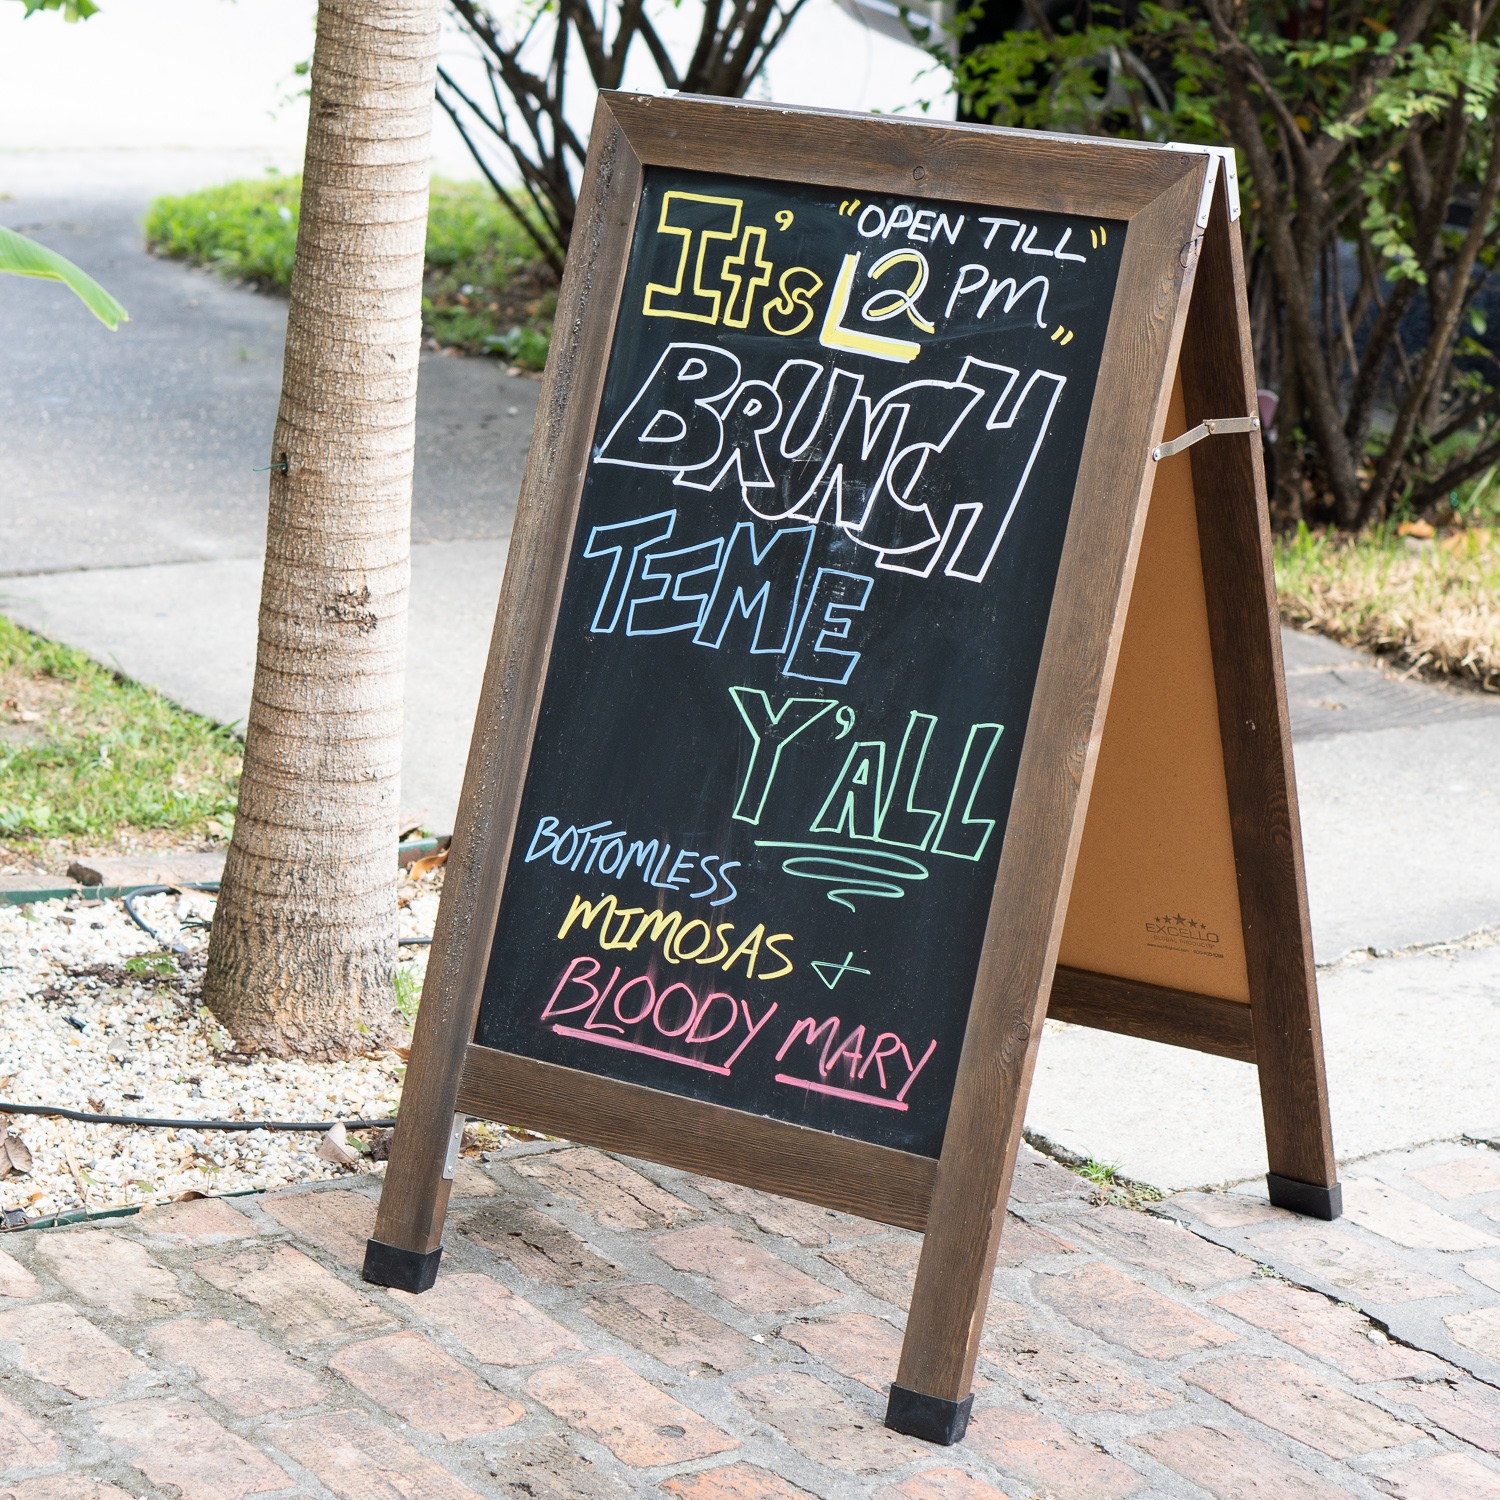 It's "OPEN TILL"
2 PM"
BRUNCH
TIME
Y'ALL
BOTTOMLESS
MIMOSAS +
BLOODY MARY
EXCELLO
GLOBAL PRODUCTS